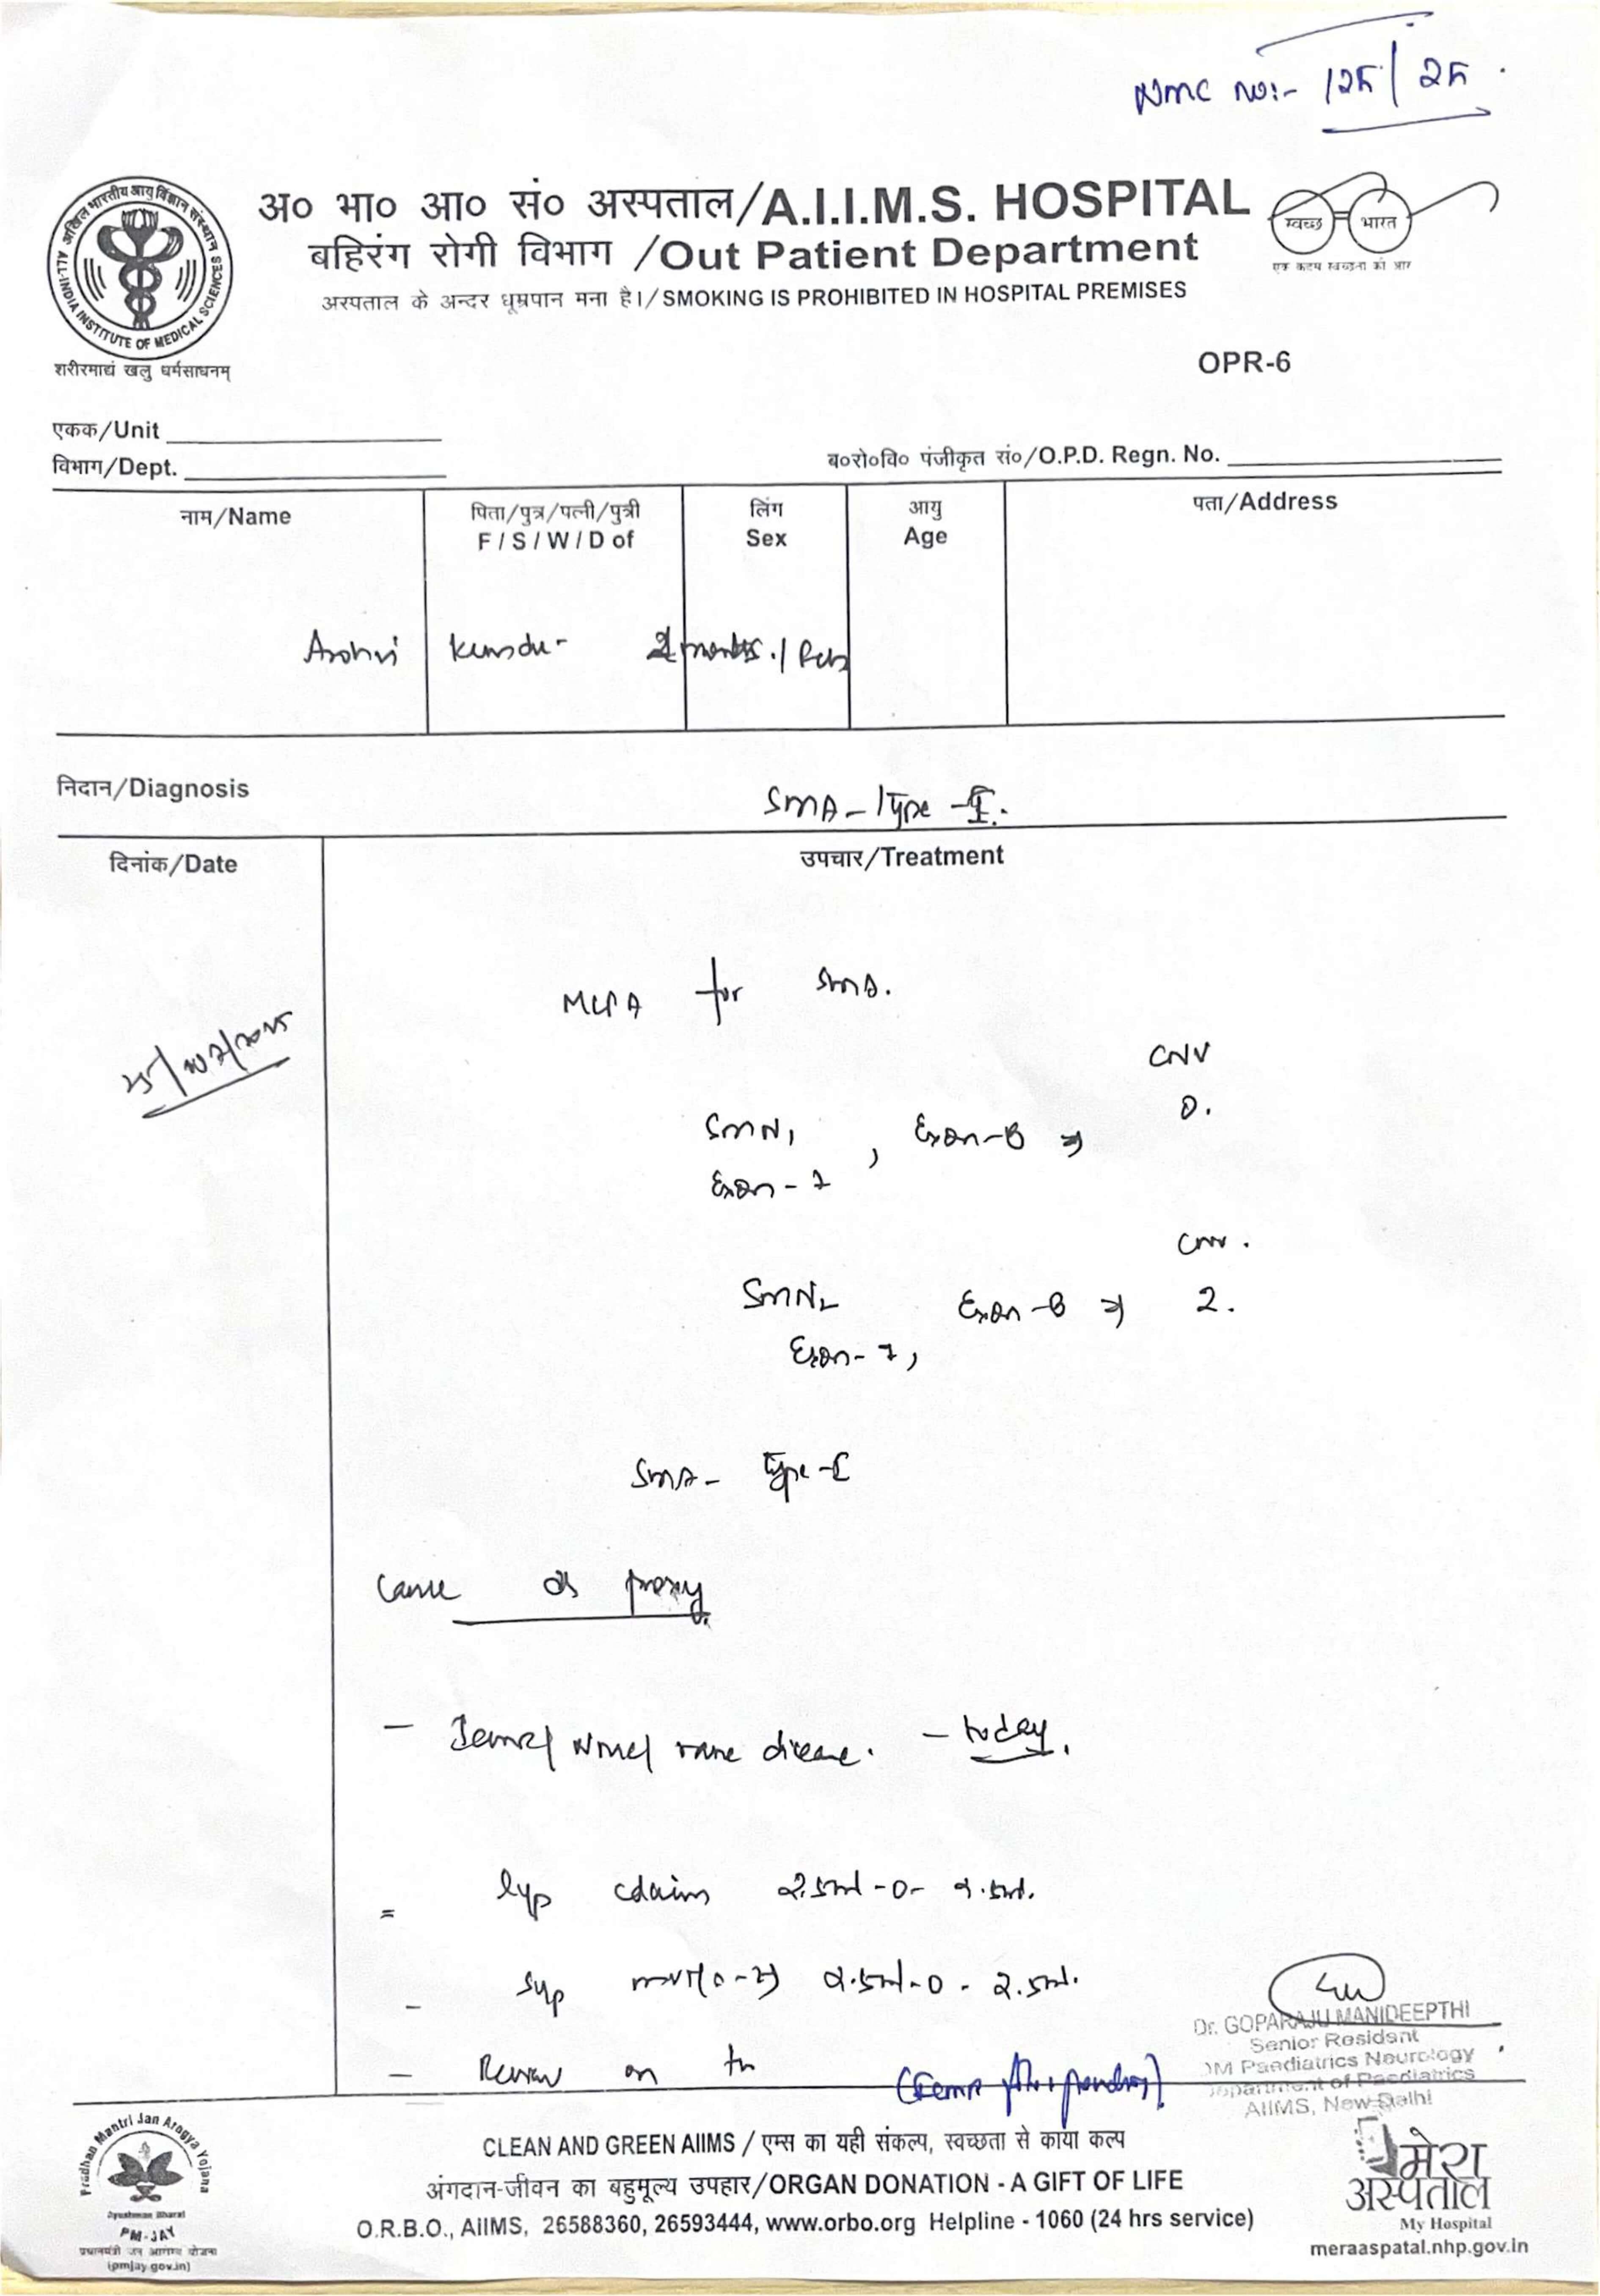 NMC no:- 125/25
अ० भा० आ० सं० अस्पताल/A.I.I.M.S. HOSPITAL
बहिरंग रोगी विभाग /Out Patient Department
अस्पताल के अन्दर धूम्रपान मना है।/ SMOKING IS PROHIBITED IN HOSPITAL PREMISES
अखिल भारतीय आयुर्विज्ञान संस्थान
ALL-INDIA INSTITUTE OF MEDICAL SCIENCES
शरीरमाद्यं खलु धर्मसाधनम्
स्वच्छ भारत
एक कदम स्वच्छता की ओर
OPR-6
एकक/Unit
विभाग/Dept.
ब०रो०वि० पंजीकृत सं०/O.P.D. Regn. No.
नाम/Name
पिता/पुत्र/पत्नी/पुत्री
F / S / W / D of
लिंग
Sex
आयु
Age
पता/Address
Kundu- 2 months. /
निदान/Diagnosis
SMA - Type - I.
दिनांक/Date
उपचार/Treatment
MLPA for SMA.
CNV
SMN1, Exon-8 ⇒ 0.
Exon-7
CNV.
SMN2 Exon-8 ⇒ 2.
Exon-7,
SMA- Type-I
Came as proxy.
- NMC/ rare disease. - today.
= Syp 2.5ml-0-2.5ml.
- Syp 2.5ml-0-2.5ml.
- Review on
Dr. GOPARAJU MANIDEEPTHI
Senior Resident
DM Paediatrics Neurology
Department of Paediatrics
AIIMS, New Delhi
Pradhan Mantri Jan Arogya Yojana
Ayushman Bharat
PM-JAY
प्रधानमंत्री जन आरोग्य योजना
(pmjay.gov.in)
CLEAN AND GREEN AIIMS / एम्स का यही संकल्प, स्वच्छता से काया कल्प
अंगदान-जीवन का बहुमूल्य उपहार/ORGAN DONATION - A GIFT OF LIFE
O.R.B.O., AIIMS, 26588360, 26593444, www.orbo.org Helpline - 1060 (24 hrs service)
मेरा
अस्पताल
My Hospital
meraaspatal.nhp.gov.in